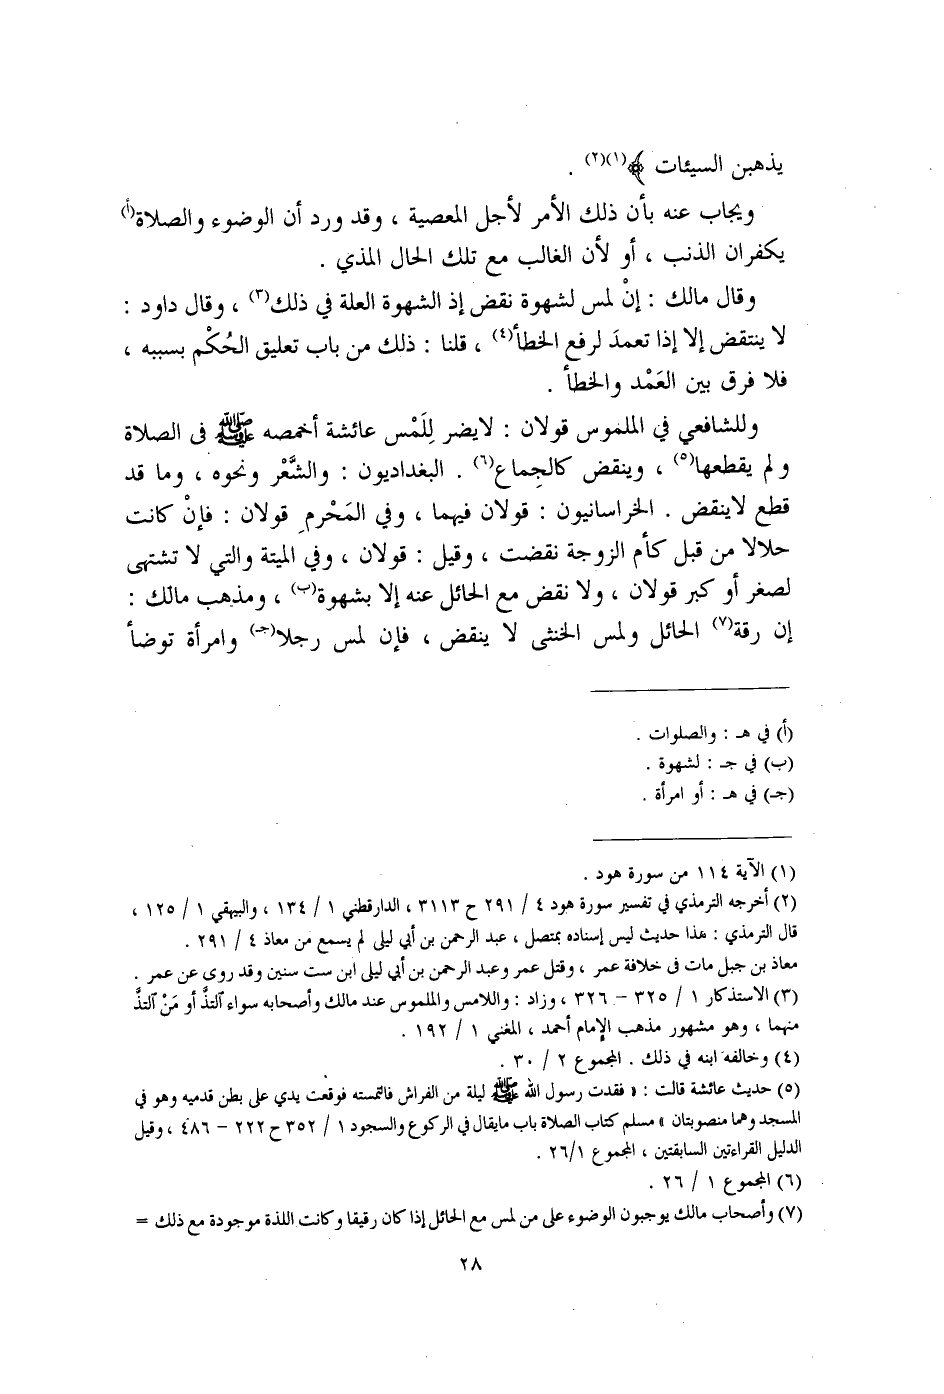 يذهبن السيئات ﴾(١)(٢) .
ويجاب عنه بأن ذلك الأمر لأجل المعصية ، وقد ورد أن الوضوء والصلاة(أ)
يكفران الذنب ، أو لأن الغالب مع تلك الحال المذي .
وقال مالك : إنْ لمس لشهوة نقض إذ الشهوة العلة في ذلك(٣) ، وقال داود :
لا ينتقض إلا إذا تعمدَ لرفع الخطأ(٤) ، قلنا : ذلك من باب تعليق الحُكْم بسببه ،
فلا فرق بين العَمْد والخطأ .
وللشافعي في الملموس قولان : لايضر لِلَمْس عائشة أخمصه ﷺ فى الصلاة
ولم يقطعها(٥) ، وينقض كالجِماع(٦) . البغداديون : والشَّعْر ونحوه ، وما قد
قطع لاينقض . الخراسانيون : قولان فيهما ، وفي المَحْرمِ قولان : فإنْ كانت
حلالا من قبل كأم الزوجة نقضت ، وقيل : قولان ، وفي الميتة والتي لا تشتهى
لصغر أو كبر قولان ، ولا نقض مع الحائل عنه إلا بشهوة(ب) ، ومذهب مالك :
إن رقة(٧) الحائل ولمس الخنثى لا ينقض ، فإن لمس رجلا(جـ) وامرأة توضأ
(أ) في هـ : والصلوات .
(ب) في جـ : لشهوة .
(جـ) في هـ : أو امرأة .
(١) الآية ١١٤ من سورة هود .
(٢) أخرجه الترمذي في تفسير سورة هود ٤ / ٢٩١ ح ٣١١٣ ، الدارقطني ١ / ١٣٤ ، والبيهقي ١ / ١٢٥ ،
قال الترمذي : هذا حديث ليس إسناده بمتصل ، عبد الرحمن بن أبي ليلى لم يسمع من معاذ ٤ / ٢٩١ .
معاذ بن جبل مات فى خلافة عمر ، وقتل عمر وعبد الرحمن بن أبي ليلى ابن ست سنين وقد روى عن عمر .
(٣) الاستذكار ١ / ٣٢٥ – ٣٢٦ ، وزاد : واللامس والملموس عند مالك وأصحابه سواء ٱلتذَّ أو مَنْ ٱلتذَّ
منهما ، وهو مشهور مذهب الإمام أحمد ، المغني ١ / ١٩٢ .
(٤) وخالفه ابنه في ذلك . المجموع ٢ / ٣٠ .
(٥) حديث عائشة قالت : « فقدت رسول الله ﷺ ليلة من الفراش فالتمسته فوقعت يدي على بطن قدميه وهو في
المسجد وهما منصوبتان » مسلم كتاب الصلاة باب مايقال في الركوع والسجود ١ / ٣٥٢ ح ٢٢٢ – ٤٨٦ ، وقيل
الدليل القراءتين السابقتين ، المجموع ٢٦/١ .
(٦) المجموع ١ / ٢٦ .
(٧) وأصحاب مالك يوجبون الوضوء على من لمس مع الحائل إذا كان رقيقا وكانت اللذة موجودة مع ذلك =
٢٨